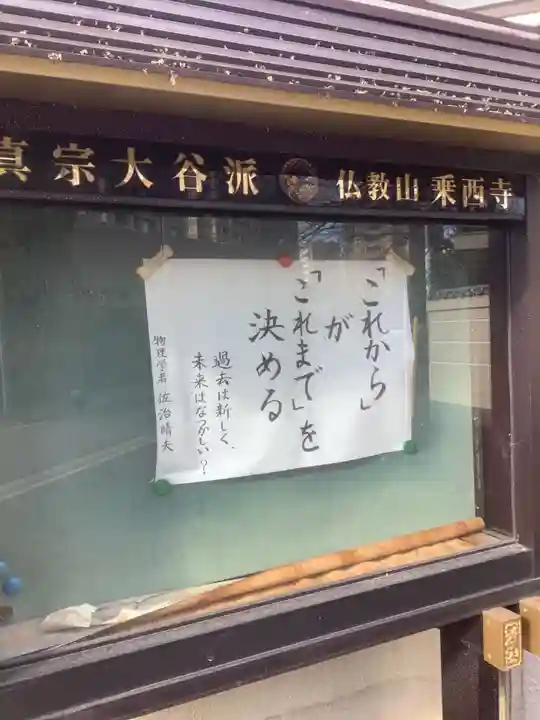 真宗大谷派 仏教山 乗西寺
「これから」
が
「これまで」を
決める
過去は新しく、
未来はなつかしい?
物理学者 佐治晴夫